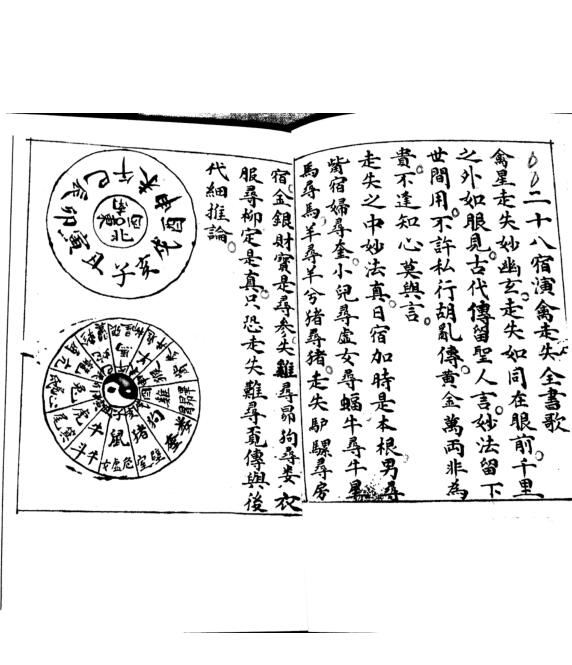 二十八宿演禽走失全書歌
禽星走失妙幽玄。走失如同在眼前。千里
之外如眼見。古代傳留聖人言。妙法留下
世間用。不許私行胡亂傳。黃金萬兩非為
貴。不逢知心莫與言。
走失之中妙法真。日宿加時是本根。男尋
觜宿婦尋奎。小兒尋虛女尋蝠。牛尋牛
馬尋馬。羊尋羊兮猪尋猪。走失驴騾尋房
宿。金銀財寶是尋參。失雞尋昴狗尋婁。衣
服尋柳定是真。只恐走失難尋覓。傳與後
代細推論。
子
丑
寅
卯
辰
巳
午
未
申
酉
戌
亥
北
鼠
牛
虎
兔
狗
猪
雞
女虛危
室
斗